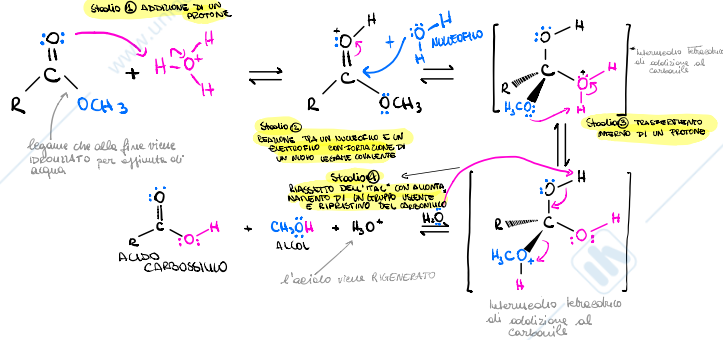 Stadio ① ADDIZIONE DI UN
PROTONE
O
C
R
OCH3
+
H
H O+
H
+
O H
C
R
OCH3
+
H
O
H
NUCLEOFILO
O H
R C
H3CO
O+ H
H
Intermedio tetraedrico
di addizione al
carbonile
legame che alla fine viene
IDROLIZZATO per aggiunta di
acqua
Stadio ②
REAZIONE TRA UN NUCLEOFILO E UN
ELETTROFILO CON FORMAZIONE DI
UN NUOVO LEGAME COVALENTE
Stadio ③ TRASFERIMENTO
INTERNO DI UN PROTONE
Stadio ④
RIASSETTO DELL'"ITAC" CON ALLONTA
NAMENTO DI UN GRUPPO USCENTE
E RIPRISTINO DEL CARBONILE
O
C
R
O H
ACIDO
CARBOSSILICO
+
CH3OH
ALCOL
+ H3O+
H2O
l'acido viene RIGENERATO
H
O
R C
O H
H3C O+
H
Intermedio tetraedrico
di addizione al
carbonile